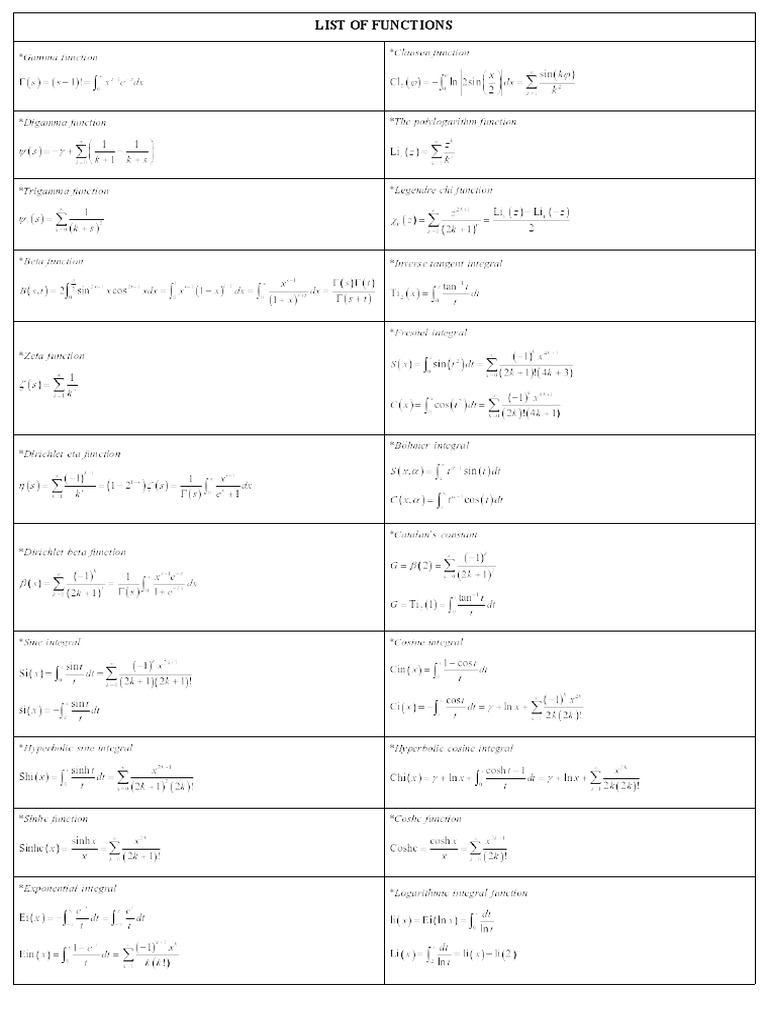 LIST OF FUNCTIONS
*Gamma function
Γ(s)=(s−1)!=∫x e dx
*Clausen function
Cl₂(φ)=−∫ln|2sin(x/2)|dx=∑sin(kφ)/k²
*Digamma function
ψ(s)=−γ+∑(1/(k+1)−1/(k+s))
*The polylogarithm function
Li(z)=∑z^k/k
*Trigamma function
ψ(s)=∑1/(k+s)²
*Legendre chi function
χ(z)=∑z^(2k+1)/(2k+1)=(Li(z)−Li(−z))/2
*Beta function
B(s,t)=2∫sin x cos xdx=∫x(1−x)dx=∫x/(1+x)dx=Γ(s)Γ(t)/Γ(s+t)
*Inverse tangent integral
Ti₂(x)=∫tan⁻¹t/t dt
*Zeta function
ζ(s)=∑1/k
*Fresnel integral
S(x)=∫sin(t²)dt=∑(−1)^k x/((2k+1)!(4k+3))
C(x)=∫cos(t²)dt=∑(−1)^k x/((2k)!(4k+1))
*Dirichlet eta function
η(s)=∑(−1)/k=(1−2)ζ(s)=1/Γ(s)∫x/(e+1)dx
*Böhmer integral
S(x,α)=∫t sin(t)dt
C(x,α)=∫t cos(t)dt
*Dirichlet beta function
β(s)=∑(−1)^k/(2k+1)=1/Γ(s)∫x e/(1+e)dx
*Catalan's constant
G=β(2)=∑(−1)^k/(2k+1)²
G=Ti₂(1)=∫tan⁻¹t/t dt
*Sine integral
Si(x)=∫sin t/t dt=∑(−1)^k x/((2k+1)(2k+1)!)
si(x)=−∫sin t/t dt
*Cosine integral
Cin(x)=∫(1−cos t)/t dt
Ci(x)=−∫cos t/t dt=γ+ln x+∑(−1)^k x^(2k)/(2k(2k)!)
*Hyperbolic sine integral
Shi(x)=∫sinh t/t dt=∑x/((2k+1)²(2k)!)
*Hyperbolic cosine integral
Chi(x)=γ+ln x+∫(cosh t−1)/t dt=γ+ln x+∑x^(2k)/(2k(2k)!)
*Sinhc function
Sinhc(x)=sinh x/x=∑x^(2k)/(2k+1)!
*Coshc function
Coshc=cosh x/x=∑x/(2k)!
*Exponential integral
Ei(x)=−∫e/t dt=∫e/t dt
Ein(x)=∫(1−e)/t dt=∑(−1) x^k/(k(k!))
*Logarithmic integral function
li(x)=Ei(ln x)=∫dt/ln t
Li(x)=∫dt/ln t=li(x)−li(2)